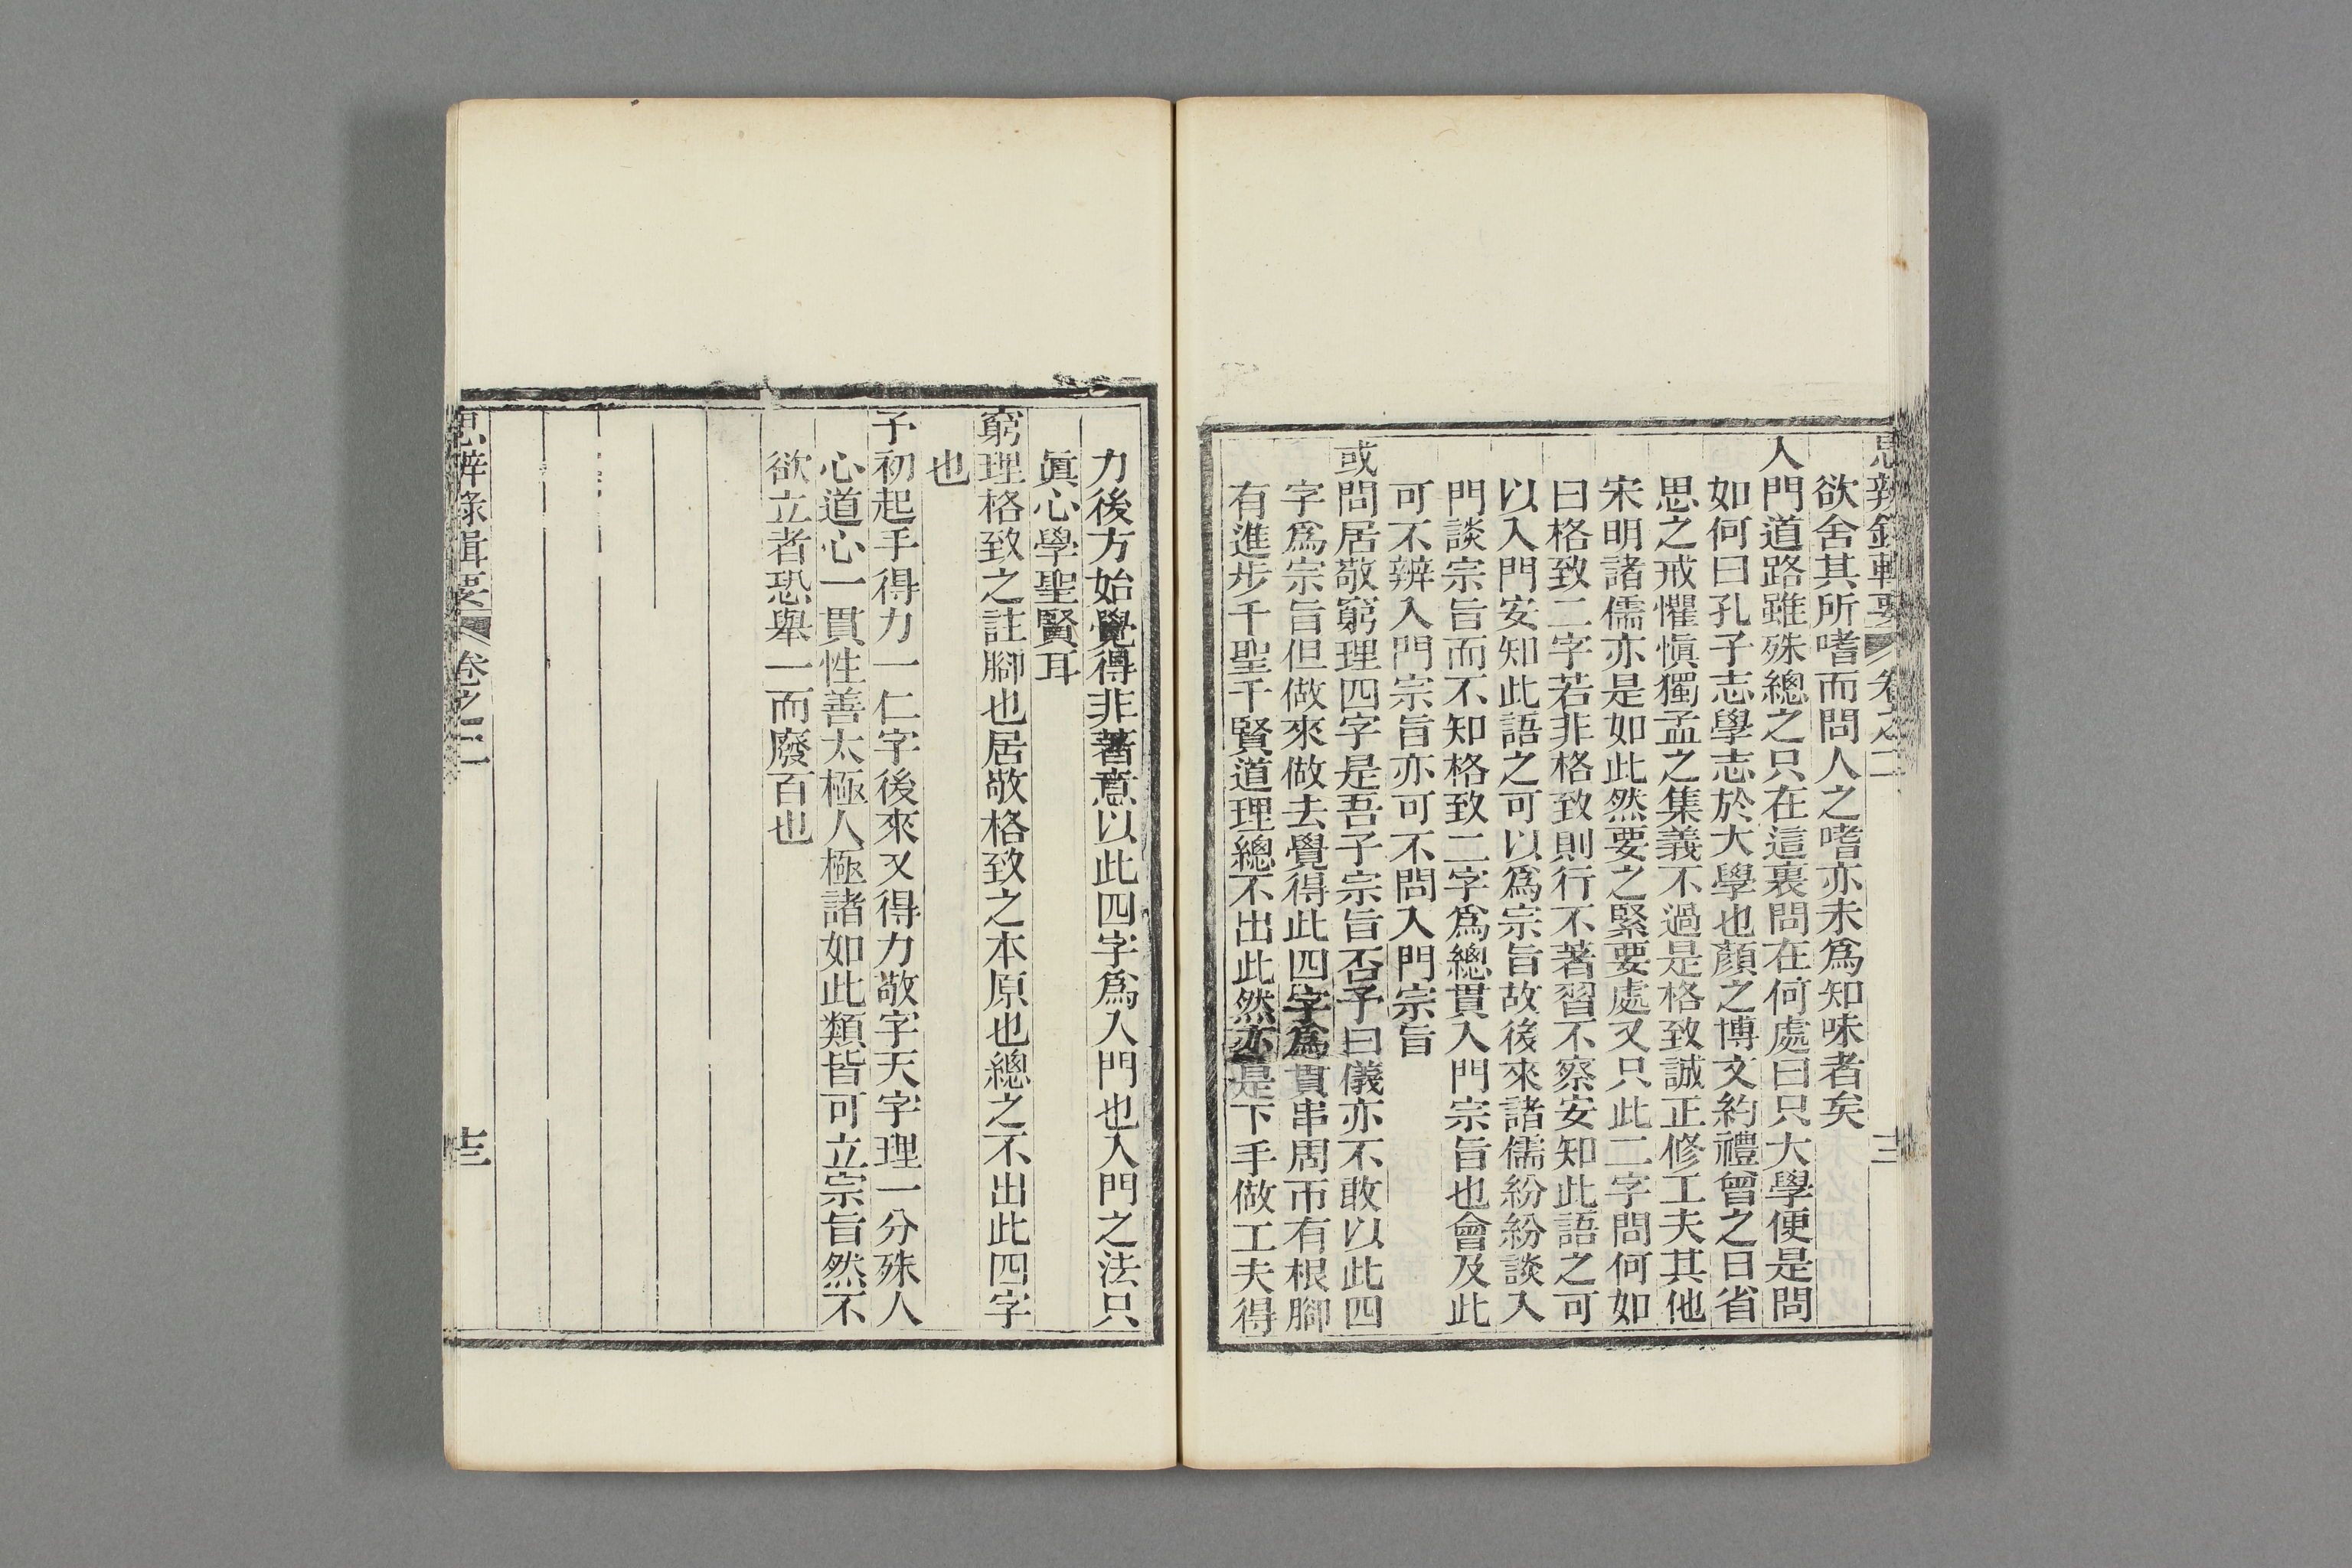 思辨錄輯要 卷之二
欲舍其所嗜而問人之嗜亦未爲知味者矣
入門道路雖殊總之只在這裏問在何處曰只大學便是問
如何曰孔子志學志於大學也顏之博文約禮曾之日省
思之戒懼愼獨孟之集義不過是格致誠正修工夫其他
宋明諸儒亦是如此然要之緊要處又只此二字問何如
曰格致二字若非格致則行不著習不察安知此語之可
以入門安知此語之可以爲宗旨故後來諸儒紛紛談入
門談宗旨而不知格致二字爲總貫入門宗旨也會及此
可不辨入門宗旨亦可不問入門宗旨
或問居敬窮理四字是吾子宗旨否予曰儀亦不敢以此四
字爲宗旨但做來做去覺得此四字爲貫串周帀有根腳
有進步千聖千賢道理總不出此然亦是下手做工夫得
力後方始覺得非著意以此四字爲入門也入門之法只
眞心學聖賢耳
窮理格致之註腳也居敬格致之本原也總之不出此四字
也
子初起手得力一仁字後來又得力敬字天字理一分殊人
心道心一貫性善太極人極諸如此類皆可立宗旨然不
欲立者恐舉一而廢百也
思辨錄輯要 卷之二 十三